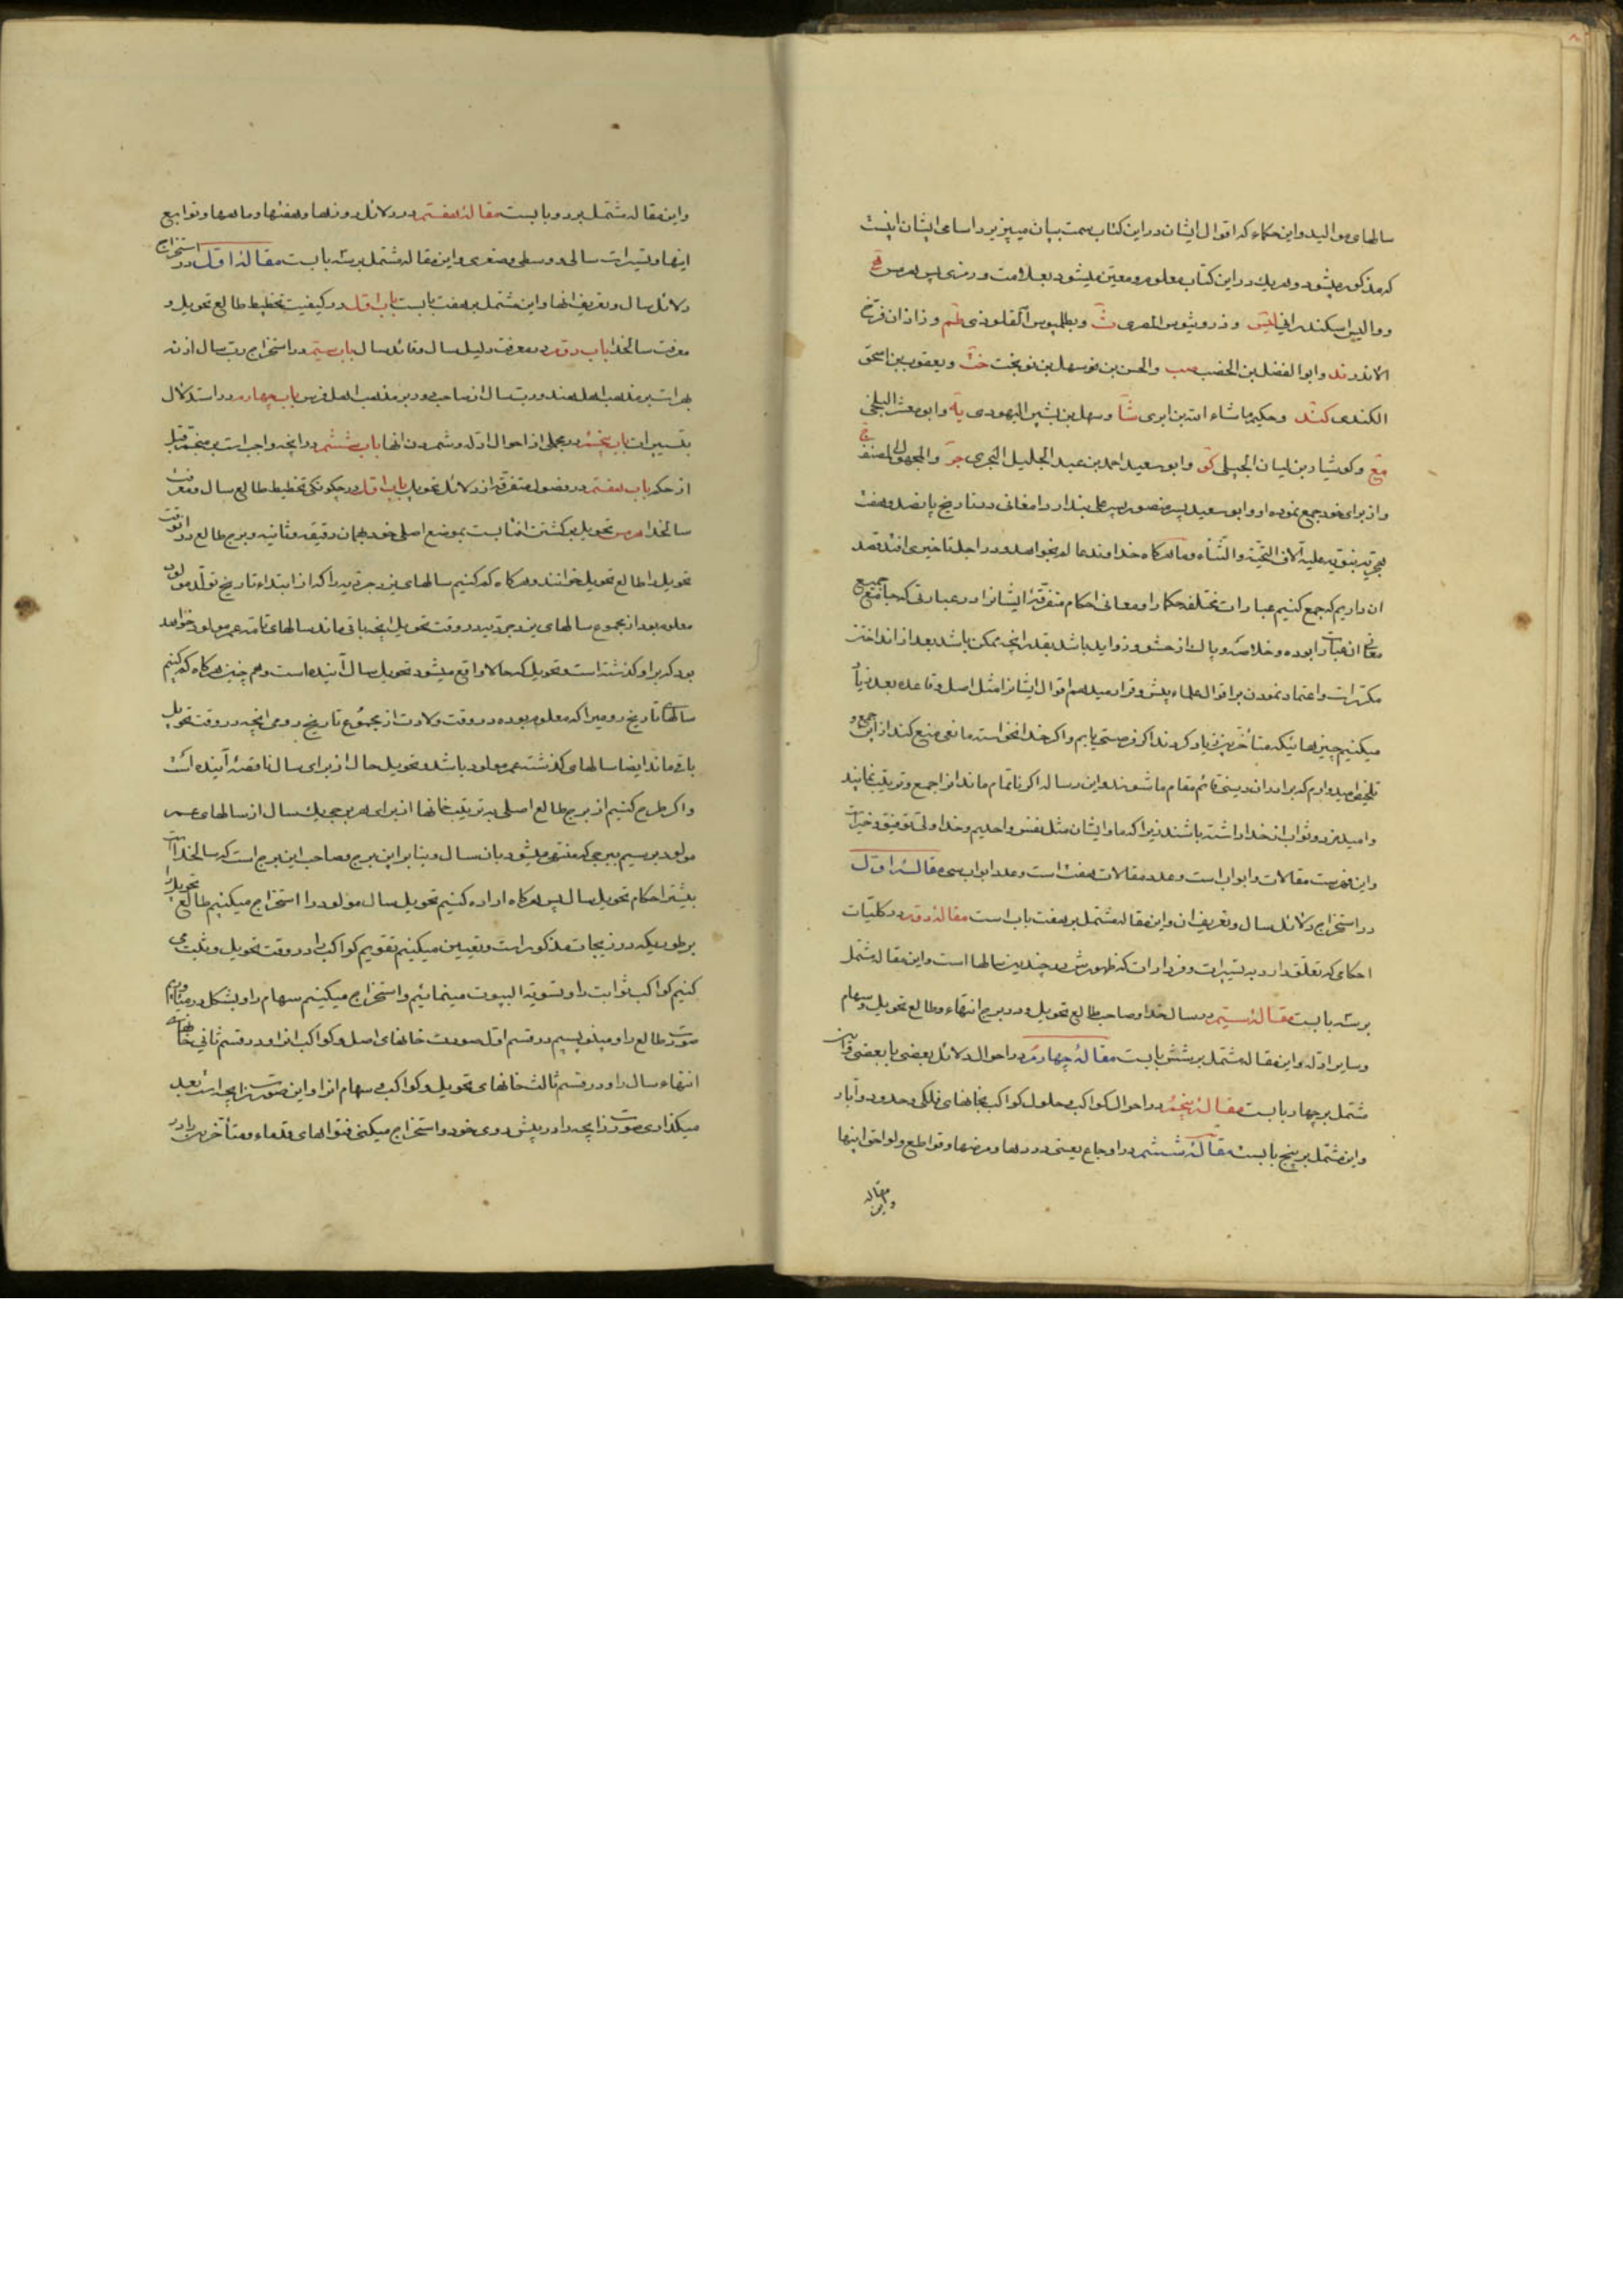 سالهای موالید و این حکماء که اقوال ایشان در این کتاب سمت بیان میپذیرد اسامی ایشان اینست
که مذکور میشود و هر یک در این کتاب معلوم و معین میشود بعلامت و رمزی پس هرمس
و والیس اسکندرانی لیس و ذروثیوس المصری ث و بطلمیوس القلوذی طم و زاذان فرخ
الاندر ند و ابو الفضل بن الخصیب صب و الحسن بن سهل بن نوبخت خت و یعقوب بن اسحق
الکندی کند و حکیم ماشاء الله بن ابری شا و سهل بن بشر الیهودی یه و ابو معشر البلخی
مع و کوشیار بن لبان الجیلی کو و ابو سعید احمد بن عبد الجلیل السجزی جر و المجهول المصنف
و از برای خود جمع نموده او و ابو سعید پسر منصور پسر علی بندار دامغانی در تاریخ پانصد و هفت
هجریه نبویه علیه الاف التحیة و الثناء و ما هرگاه خداوند عالم بخواهد و در اجل تاخیری افتد قصد
ان داریم که جمع کنیم عبارات مختلفه حکما را و معانی احکام متفرقه ایشانرا در عبارتی که جامع جمیع
معانی ان عبارات بوده و خلاصه و پاک از حشو و زواید باشد بقدر انچه ممکن باشد بعد از انداختن
مکررات و اعتماد نمودن بر اقوال علماء پیش و قرار میدهم اقوال ایشانرا مثل اصل و قاعده بعد زیاد
میکنیم چیزهائیکه متأخرین زیاد کردند اگر فرصتی یابیم و اگر خدا نخواسته مانعی منع کند از این جمع و
تلخیص امیدوارم که برادران دینی قائم مقام ما شوند و این رساله اگر ناتمام ماند انرا جمع و ترتیب نمایند
و امید مزد و ثواب از خدا داشته باشند زیرا که ما و ایشان مثل نفس واحدیم و خدا ولی توفیق و خیرات
و این فهرست مقالات و ابواب است و عدد مقالات هفت است و عدد ابواب سی مقالهٔ اول
در استخراج دلائل سال و تعریف ان و این مقاله مشتمل بر هفت باب است مقالهٔ دوم در کلیات
احکامی که تعلق دارد به تسییرات و فردارات که ظهورش در چندین سالها است و این مقاله مشتمل
بر سه بابست مقالهٔ سیم در سالخدا و صاحب طالع تحویل و در برج انتهاء و طالع تحویل و سهام
و سایر ادله و این مقاله مشتمل بر شش بابست مقالهٔ چهارم در احوال دلائل بعضی با بعضی و این
مشتمل بر چهار بابست مقالهٔ پنجم در احوال کواکب و حلول کواکب بخانهای فلکی و حدود و آبار
و این مشتمل بر پنج بابست مقالهٔ ششم در اوجاع یعنی دردها و مرضها و قواطع و لواحق اینها
و این مقاله
و این مقاله مشتمل بر دو بابست مقالهٔ هفتم در دلائل روزها و هفتها و ماهها و توابع
اینها و تسییرات سالی و وسطی و صغری و این مقاله مشتمل بر سه بابست مقالهٔ اول در استخراج
دلائل سال و تعریف انها و این مشتمل بر هفت بابست باب اول در کیفیت تخطیط طالع تحویل و
معرفت سالخدا باب دوم در معرفت دلیل سال و قائل سال باب سیم در استخراج رب سال از نه
بهرات بر مذهب اهل هند و رب سال از صاحب دور بر مذهب اهل فرس باب چهارم در استدلال
بتسییرات باب پنجم در مجملی از احوال ادله و شمردن انها باب ششم در انچه واجب است بر منجم قبل
از حکم باب هفتم در فصول متفرقه از دلائل تحویل باب اول در چگونگی تخطیط طالع سال و معرفت
سالخدا هرمس تحویل برگشتن افتابست بموضع اصلی خود بهمان دقیقه و ثانیه و برج طالع در انوقت
تحویل را طالع تحویل خوانند و هرگاه کم کنیم سالهای یزدجردیه را که از ابتداء تاریخ تولد مولود
معلوم بود از مجموع سالهای یزدجردیه در وقت تحویل انچه باقی ماند سالهای تامه عمر مولود خواهد
بود که بر او گذشته است و تحویل که حالا واقع میشود تحویل سال آینده است و همچنین هرگاه کم کنیم
سالهای تاریخ رومیرا که معلوم بوده در وقت ولادت از مجموع تاریخ رومی انچه در وقت تحویل
باقی ماند ایضا سالهای گذشته عمر مولود باشد و تحویل حال از برای سال ناقصه آینده است
و اگر طرح کنیم از برج طالع اصلی به ترتیب خانها از برای هر برجی یک سال از سالهای عمر
مولود برسیم ببرجی که منتهی میشود بان سال و بنابر این برج و صاحب این برج است که سالخدا است
بیشتر احکام تحویل سال پس هرگاه اراده کنیم تحویل سال مولود را استخراج میکنیم طالع تحویل را
بر طوریکه در زیجات مذکور است و تعیین میکنیم تقویم کواکب را در وقت تحویل و ثبت می
کنیم کواکب ثوابت را و تسویة البیوت مینمائیم و استخراج میکنیم سهام را و بشکل در میاوریم
صورت طالع را و مینویسیم در قسم اول صورت خانهای اصل و کواکب انرا و در قسم ثانی خانهای
انتهاء سال را و در قسم ثالث خانهای تحویل و کواکب و سهام انرا و این صورت زایجه است بعد
میگذاری صورت زایجه را در پیش روی خود و استخراج میکنی فتوالهای قدماء و متأخرین را در